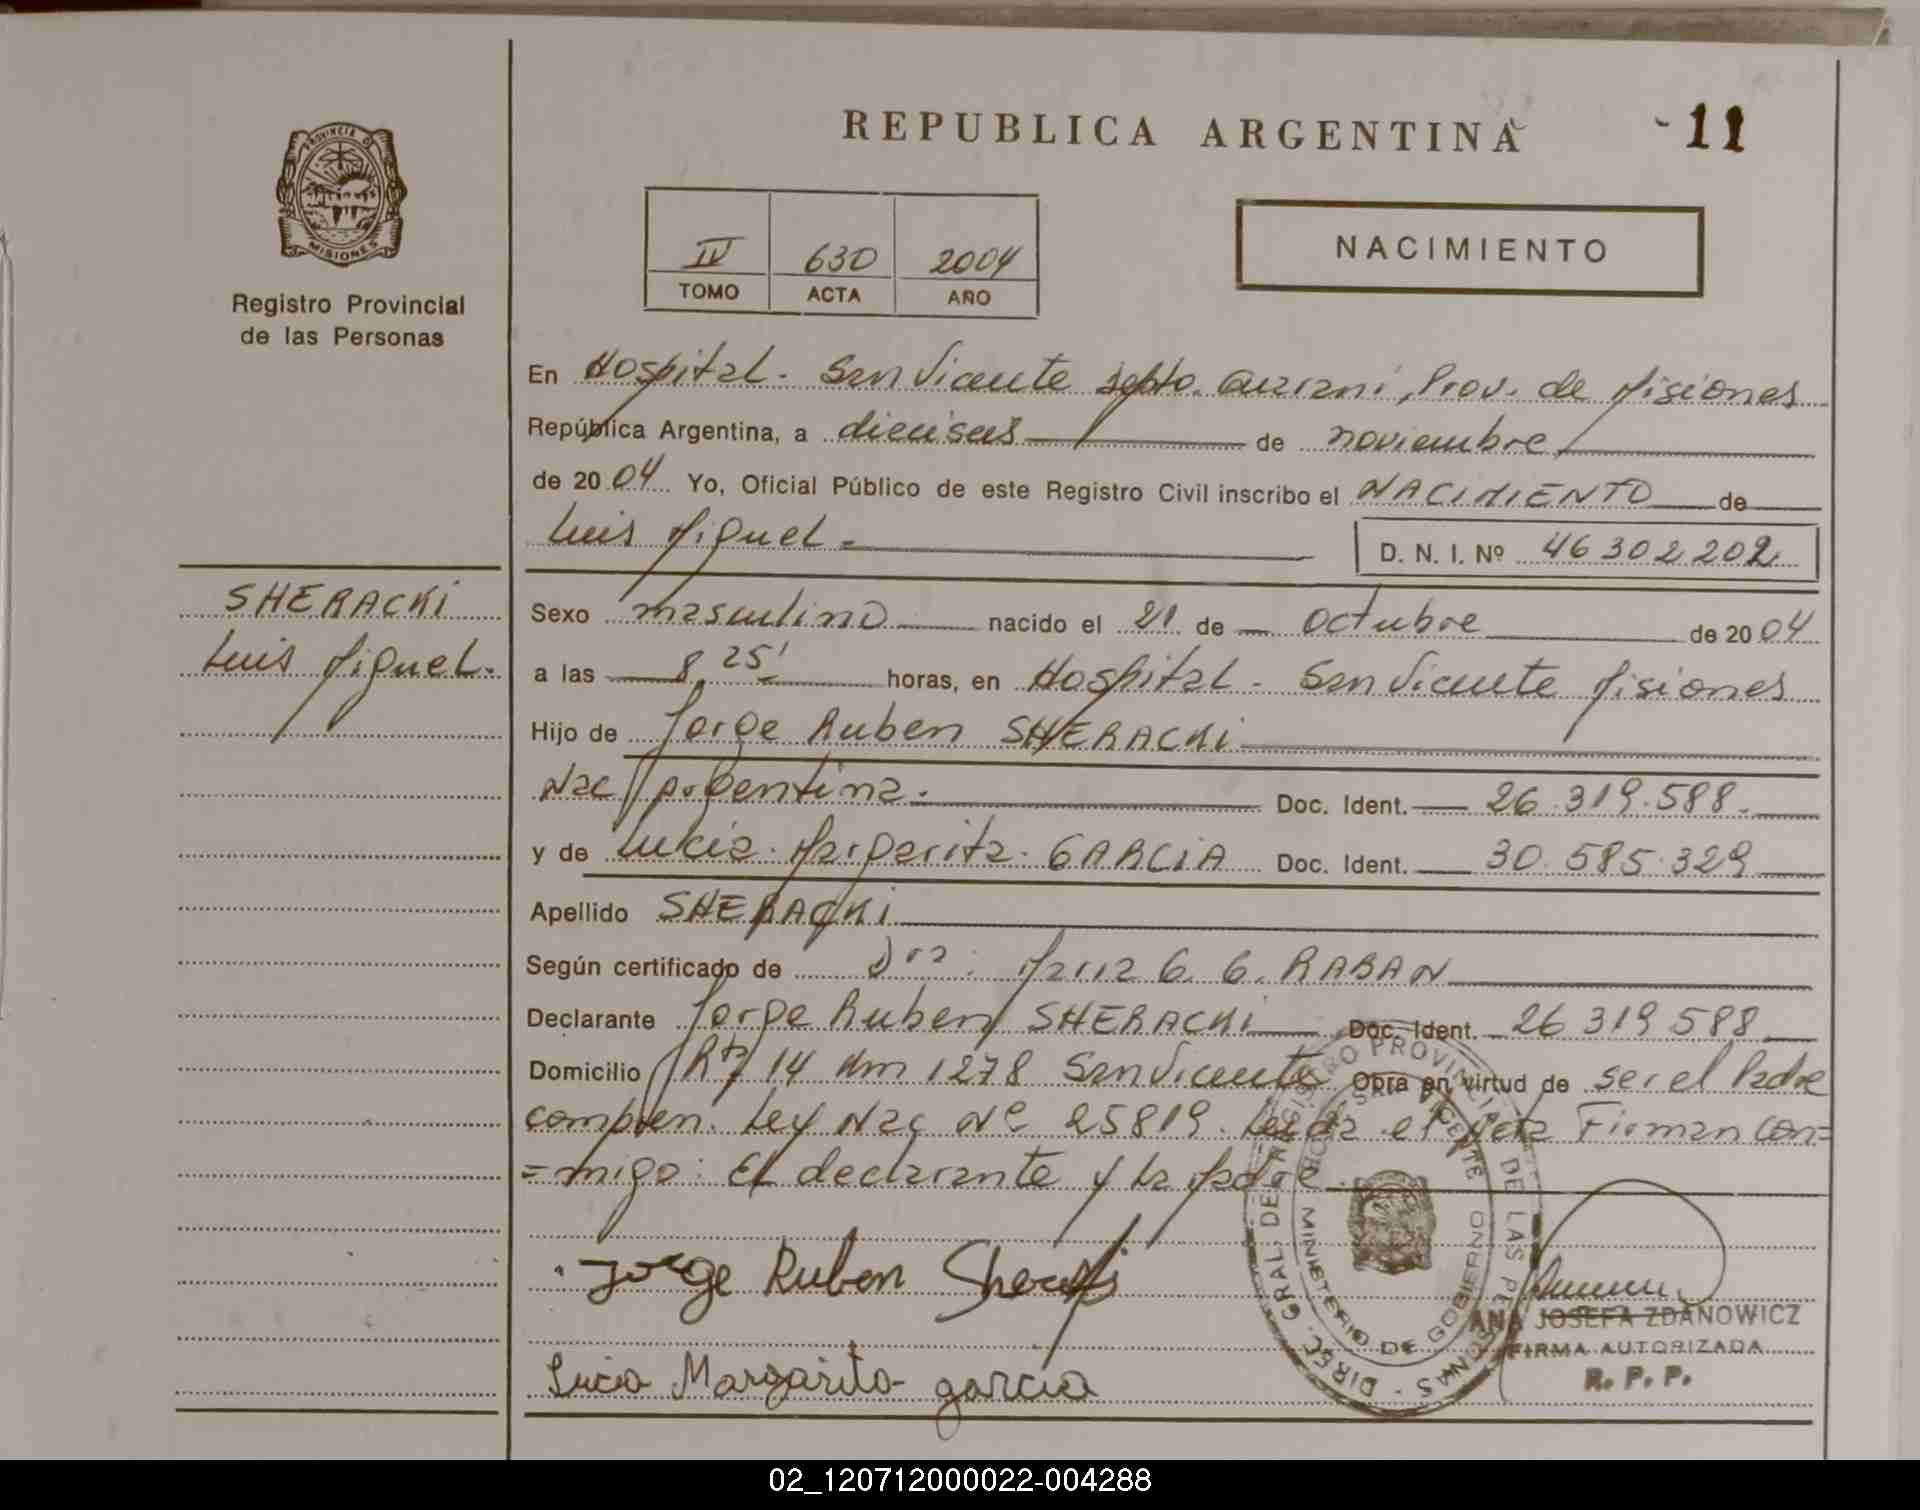 REPUBLICA ARGENTINA
11
PROVINCIA D
MISIONES
Registro Provincial
de las Personas
IV 630 2004
TOMO ACTA AÑO
NACIMIENTO
En Hospital - San Vicente Depto. Guaraní, Prov. de Misiones
República Argentina, a dieciseis de noviembre
de 2004 Yo, Oficial Público de este Registro Civil inscribo el NACIMIENTO de
Luis Miguel.
D. N. I. Nº 46302202
SHERACKi
Luis Miguel.
Sexo masculino nacido el 21 de octubre de 2004
a las 8,25' horas, en Hospital - San Vicente Misiones
Hijo de Jorge Ruben SHERACKi
Nac Argentina. Doc. Ident. 26.319.588.
y de Lucia Margarita GARCiA Doc. Ident. 30.585.329
Apellido SHERACKi
Según certificado de Dra: Maria G. G. RABAN
Declarante Jorge Ruben SHERACKi Doc. Ident. 26 319 588
Domicilio Rta 14 Km 1278 San Vicente Obra en virtud de ser el Padre
compren. Ley Nac Nº 25819. Leida el Acta Firman con=
=migo: El declarante y la Madre.
Jorge Ruben Sheracki
Lucia Margarita garcia
DIREC. GRAL. DEL REGISTRO PROVINCIAL DE LAS PERSONAS
HOSP. SAN VICENTE
MINISTERIO DE GOBIERNO
ANA JOSEFA ZDANOWICZ
FIRMA AUTORIZADA
R. P. P.
02_120712000022-004288